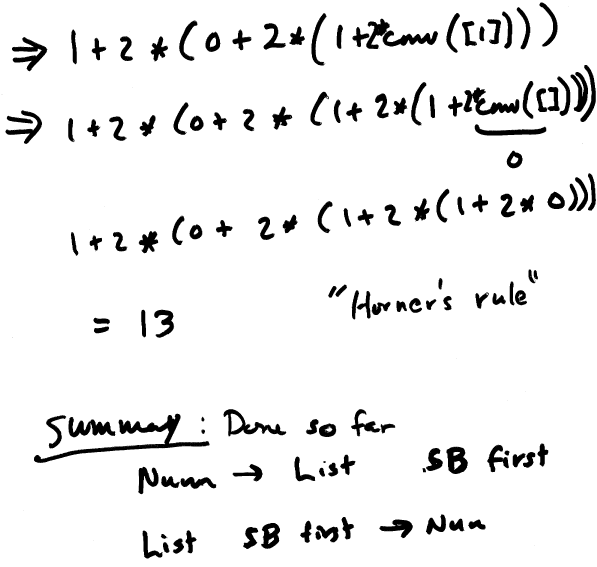 ⇒ 1+2*(0+2*(1+2*conv([1])))
⇒ 1+2*(0+2*(1+2*(1+2*conv([]))))
0
1+2*(0+2*(1+2*(1+2*0)))
= 13 "Horner's rule"
Summary: Done so far
Num → List SB first
List SB first → Num